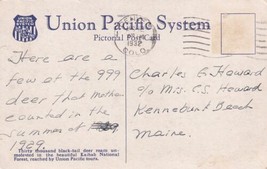 Union Pacific System
Pictorial Post Card
1932
COLO.
Here are a
few of the 999
deer that Mother
counted in the
summer of
1929.
Charles E. Howard
c/o Mrs. C. S. Howard
Kennebunk Beach
Maine.
Thirty thousand black-tail deer roam un-
molested in the beautiful Kaibab National
Forest, reached by Union Pacific tours.